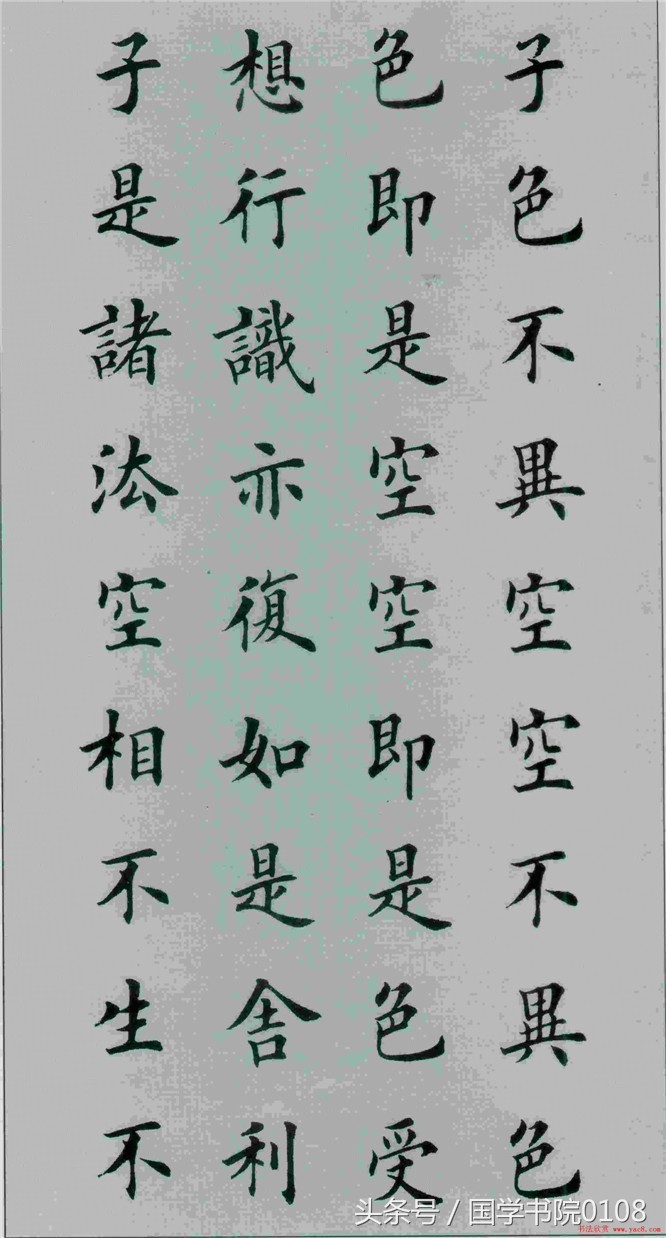 子色不異空空不異色
色即是空空即是色受
想行識亦復如是舍利
子是諸法空相不生不
头条号 / 国学书院0108
书法欣赏 www.yac8.com